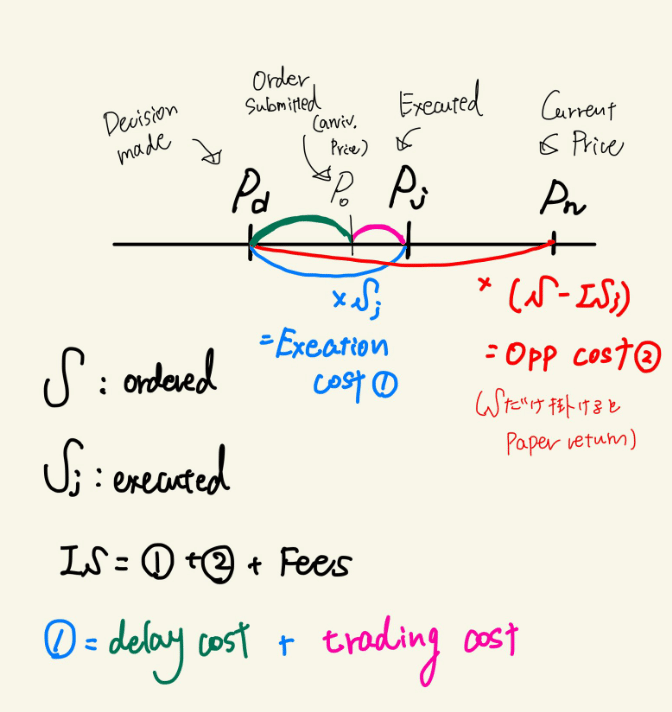 Decision
made
Order
Submitted
(arriv.
Price)
Executed
Current
Price
Pd
P₀
Pj
Pn
× Sj
= Exeation
cost ①
× (S - ΣSj)
= Opp cost ②
(Sだけ掛けると
Paper return)
S : ordered
Sj : executed
IS = ① + ② + Fees
① = delay cost + trading cost